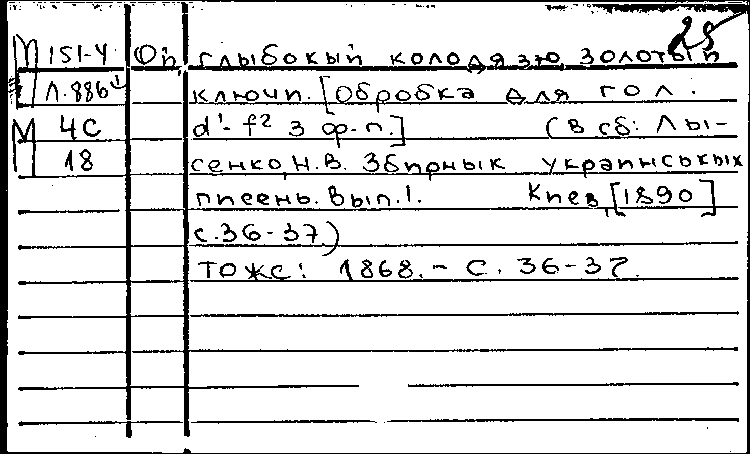 28
М 151-4 Ой, глыбокый колодязю, золотый
Л.886 ключи. [Обробка для гол.
М 4С d¹- f² з ф-п.] (В сб: Лы-
18 сенко, Н.В. Збирнык украинськых
писень. Вып.1. Киев, [1890]
с.36-37.)
тоже: 1868. - С. 36-37.